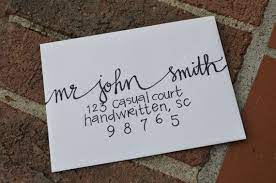 mr john smith
123 casual court
handwritten, sc
98765